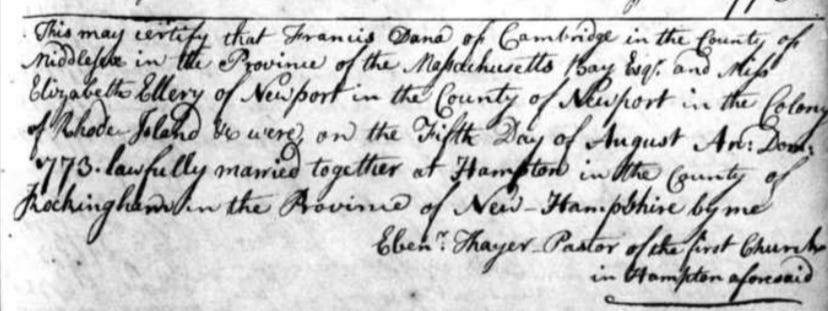 This may certify that Francis Dana of Cambridge in the County of
Middlesex in the Province of the Massachusetts Bay Esqr. and Miss
Elizabeth Ellery of Newport in the County of Newport in the Colony
of Rhode-Island &c were, on the Fifth Day of August An: Dom:
1773. lawfully married together at Hampton in the County of
Rockingham in the Province of New-Hampshire by me
Ebenr. Thayer Pastor of the first Church
in Hampton aforesaid